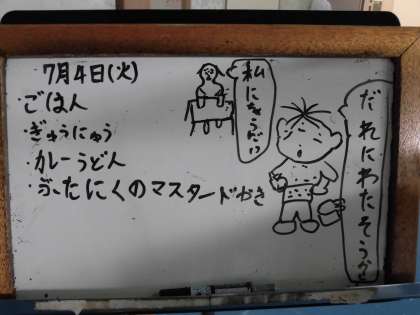 7月4日(火)
・ごはん
・ぎゅうにゅう
・カレーうどん
・ぶたにくのマスタードやき
私に
だれにわたそうか